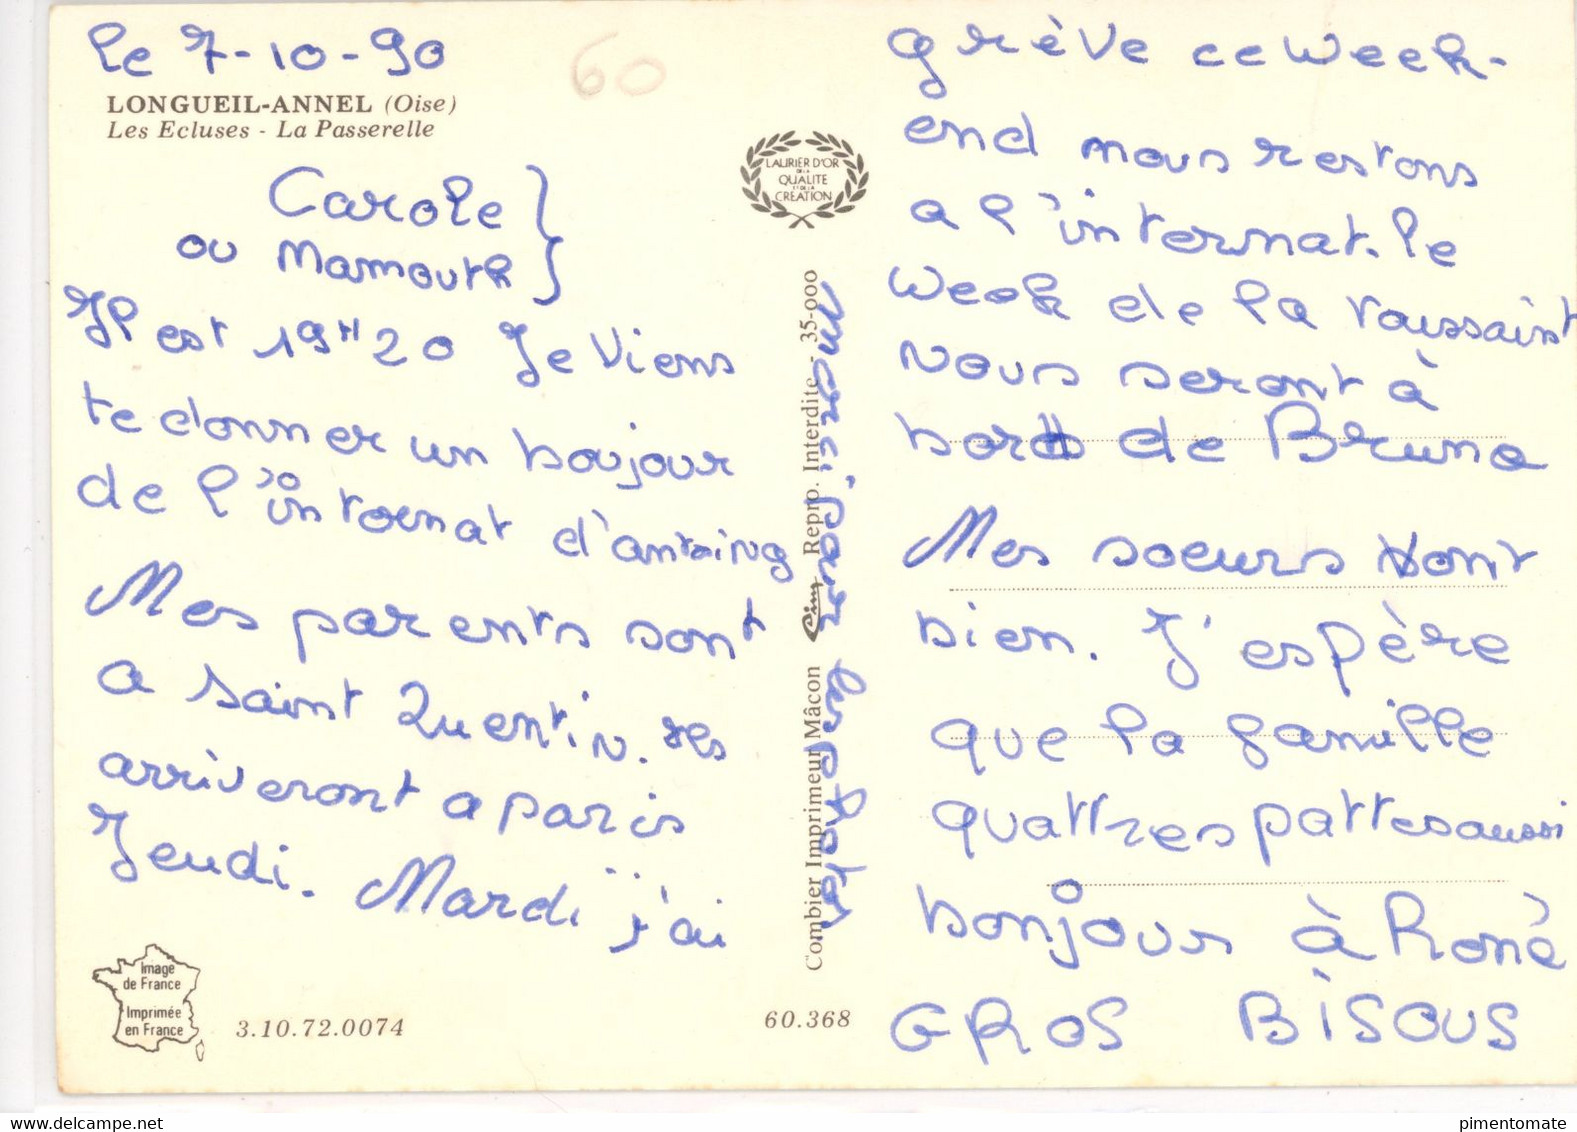 le 7-10-90
60
LONGUEIL-ANNEL (Oise)
Les Ecluses - La Passerelle
Carole
ou Mamouth
Il est 19H20 Je viens
te donner un boujour
de l'internat d'antoing
Mes parents sont
a saint Quentin. Ils
arriveront a paris
Jeudi. Mardi j'ai
Image
de France
Imprimée
en France
3.10.72.0074
60.368
LAURIER D'OR
DE LA
QUALITE
ET DE LA
CREATION
Combier Imprimeur Mâcon Cim Repro. Interdite - 35-000
grève ce week-
end nous restons
a l'internat. le
week de la toussaint
nous seront à
bord de Bruno
Mes soeurs vont
bien. J'espère
que la famille
quattres pattes aussi
bonjour à René
GROS BISOUS
pimentomate